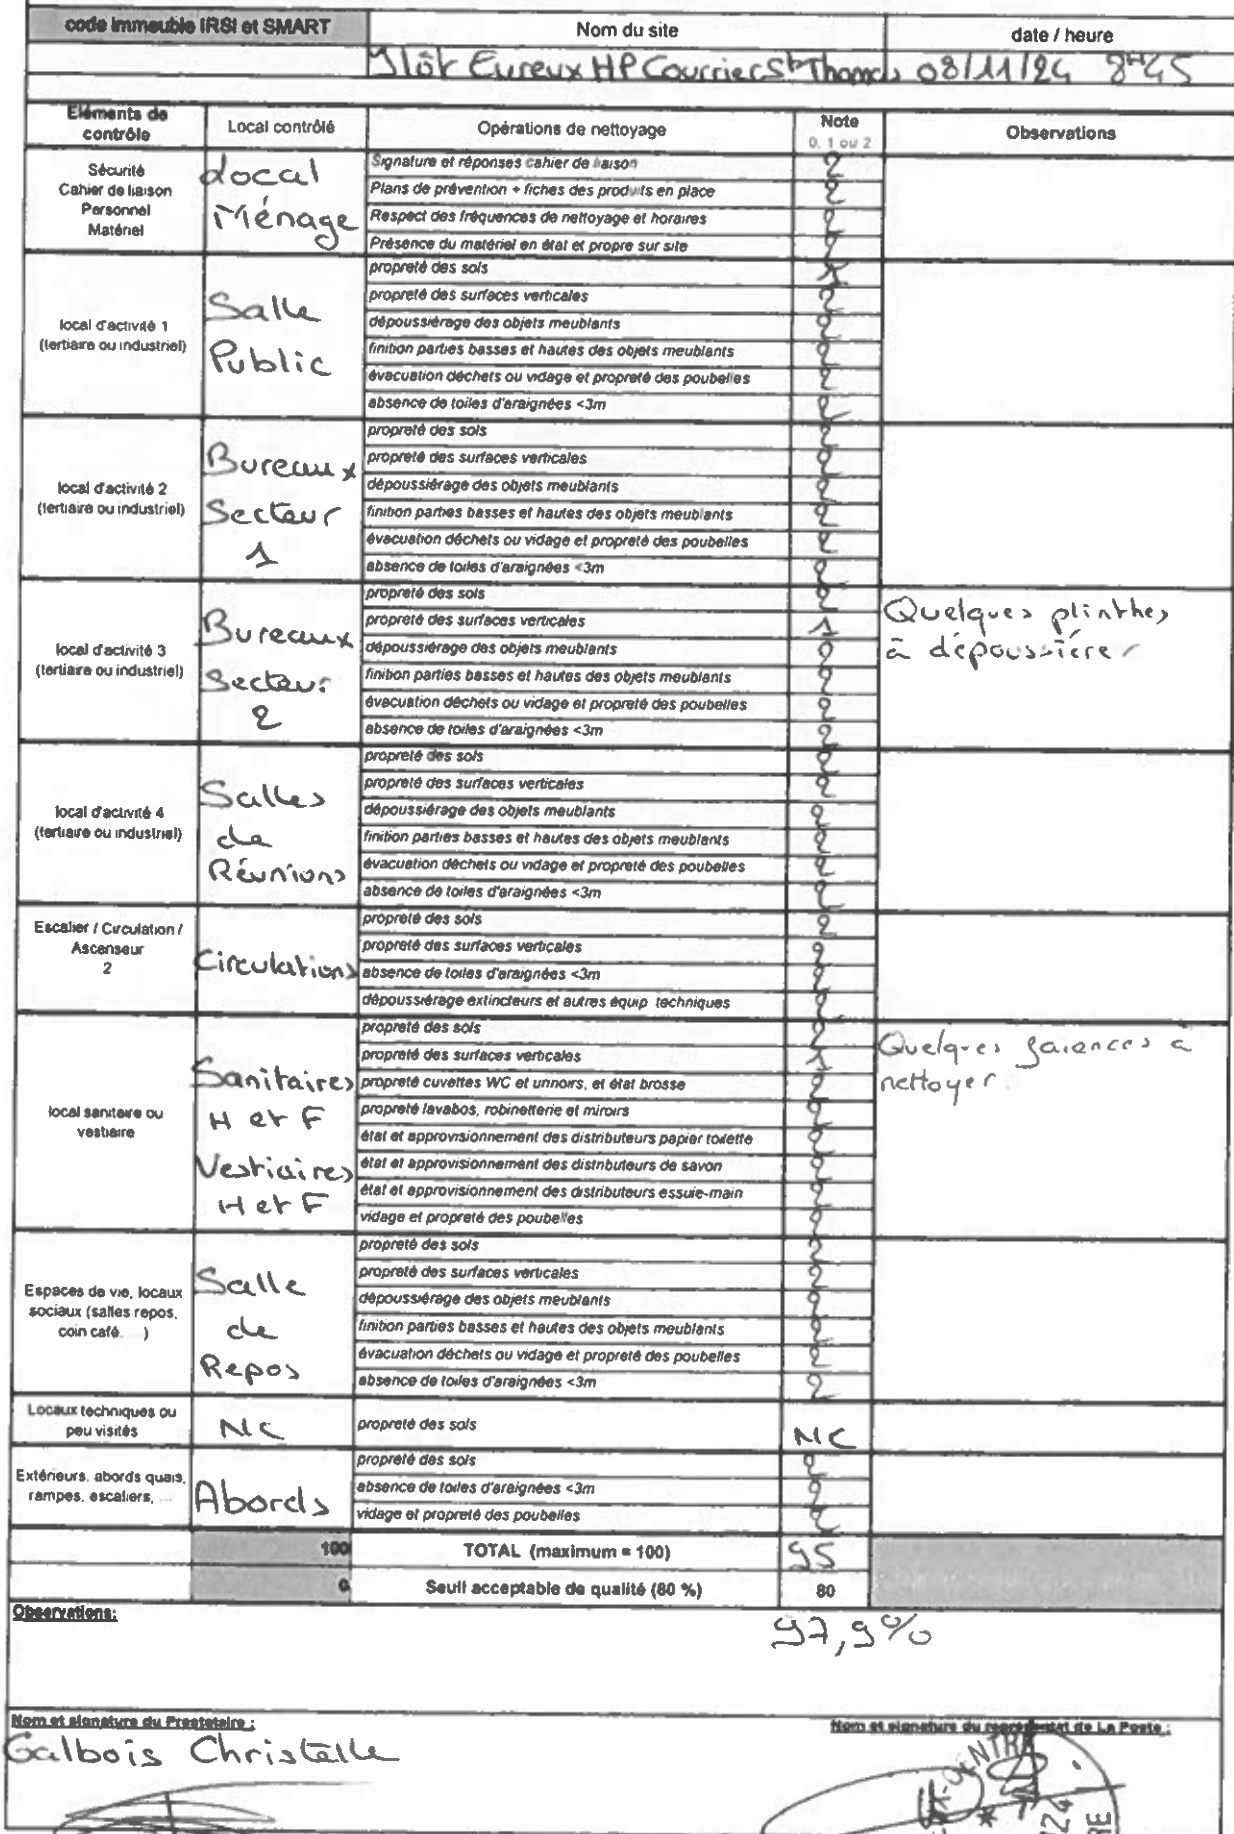 code immeuble IRSI et SMART Nom du site date / heure
Ilôt Evreux HP Courrier St Thomas 08/11/24 8H45
Eléments de contrôle Local contrôlé Opérations de nettoyage Note 0, 1 ou 2 Observations
Sécurité
Cahier de liaison
Personnel
Matériel
Local
Ménage
Signature et réponses cahier de liaison 2
Plans de prévention + fiches des produits en place 2
Respect des fréquences de nettoyage et horaires 2
Présence du matériel en état et propre sur site 2
local d'activité 1
(tertiaire ou industriel)
Salle
Public
propreté des sols 1
propreté des surfaces verticales 2
dépoussiérage des objets meublants 2
finition parties basses et hautes des objets meublants 2
évacuation déchets ou vidage et propreté des poubelles 2
absence de toiles d'araignées <3m 2
local d'activité 2
(tertiaire ou industriel)
Bureaux
Secteur
1
propreté des sols 2
propreté des surfaces verticales 2
dépoussiérage des objets meublants 2
finition parties basses et hautes des objets meublants 2
évacuation déchets ou vidage et propreté des poubelles 2
absence de toiles d'araignées <3m 2
local d'activité 3
(tertiaire ou industriel)
Bureaux
Secteur
2
propreté des sols 2
propreté des surfaces verticales 1
dépoussiérage des objets meublants 2
finition parties basses et hautes des objets meublants 2
évacuation déchets ou vidage et propreté des poubelles 2
absence de toiles d'araignées <3m 2
Quelques plinthes
à dépoussiérer
local d'activité 4
(tertiaire ou industriel)
Salles
de
Réunions
propreté des sols 2
propreté des surfaces verticales 2
dépoussiérage des objets meublants 2
finition parties basses et hautes des objets meublants 2
évacuation déchets ou vidage et propreté des poubelles 2
absence de toiles d'araignées <3m 2
Escalier / Circulation /
Ascenseur
2
Circulations
propreté des sols 2
propreté des surfaces verticales 2
absence de toiles d'araignées <3m 2
dépoussiérage extincteurs et autres équip techniques 2
local sanitaire ou
vestiaire
Sanitaires
H et F
Vestiaires
H et F
propreté des sols 2
propreté des surfaces verticales 1
propreté cuvettes WC et urinoirs, et état brosse 2
propreté lavabos, robinetterie et miroirs 2
état et approvisionnement des distributeurs papier toilette 2
état et approvisionnement des distributeurs de savon 2
état et approvisionnement des distributeurs essuie-main 2
vidage et propreté des poubelles 2
Quelques faïences à
nettoyer.
Espaces de vie, locaux
sociaux (salles repos,
coin café. )
Salle
de
Repos
propreté des sols 2
propreté des surfaces verticales 2
dépoussiérage des objets meublants 2
finition parties basses et hautes des objets meublants 2
évacuation déchets ou vidage et propreté des poubelles 2
absence de toiles d'araignées <3m 2
Locaux techniques ou
peu visités
NC
propreté des sols NC
Extérieurs, abords quais,
rampes, escaliers, ...
Abords
propreté des sols 2
absence de toiles d'araignées <3m 2
vidage et propreté des poubelles 2
100 TOTAL (maximum = 100) 95
0 Seuil acceptable de qualité (80 %) 80
Observations:
97,9%
Nom et signature du Prestataire :
Nom et signature du représentant de La Poste :
Galbois Christelle